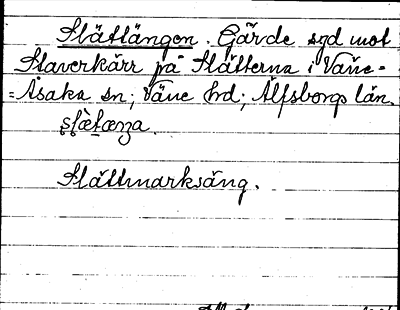 Slättängen. Gärde syd mot
Staverkärr på Slätterna i Väne-
=Åsaka sn; Väne hd; Älfsborgs län.
Slättmarksäng.